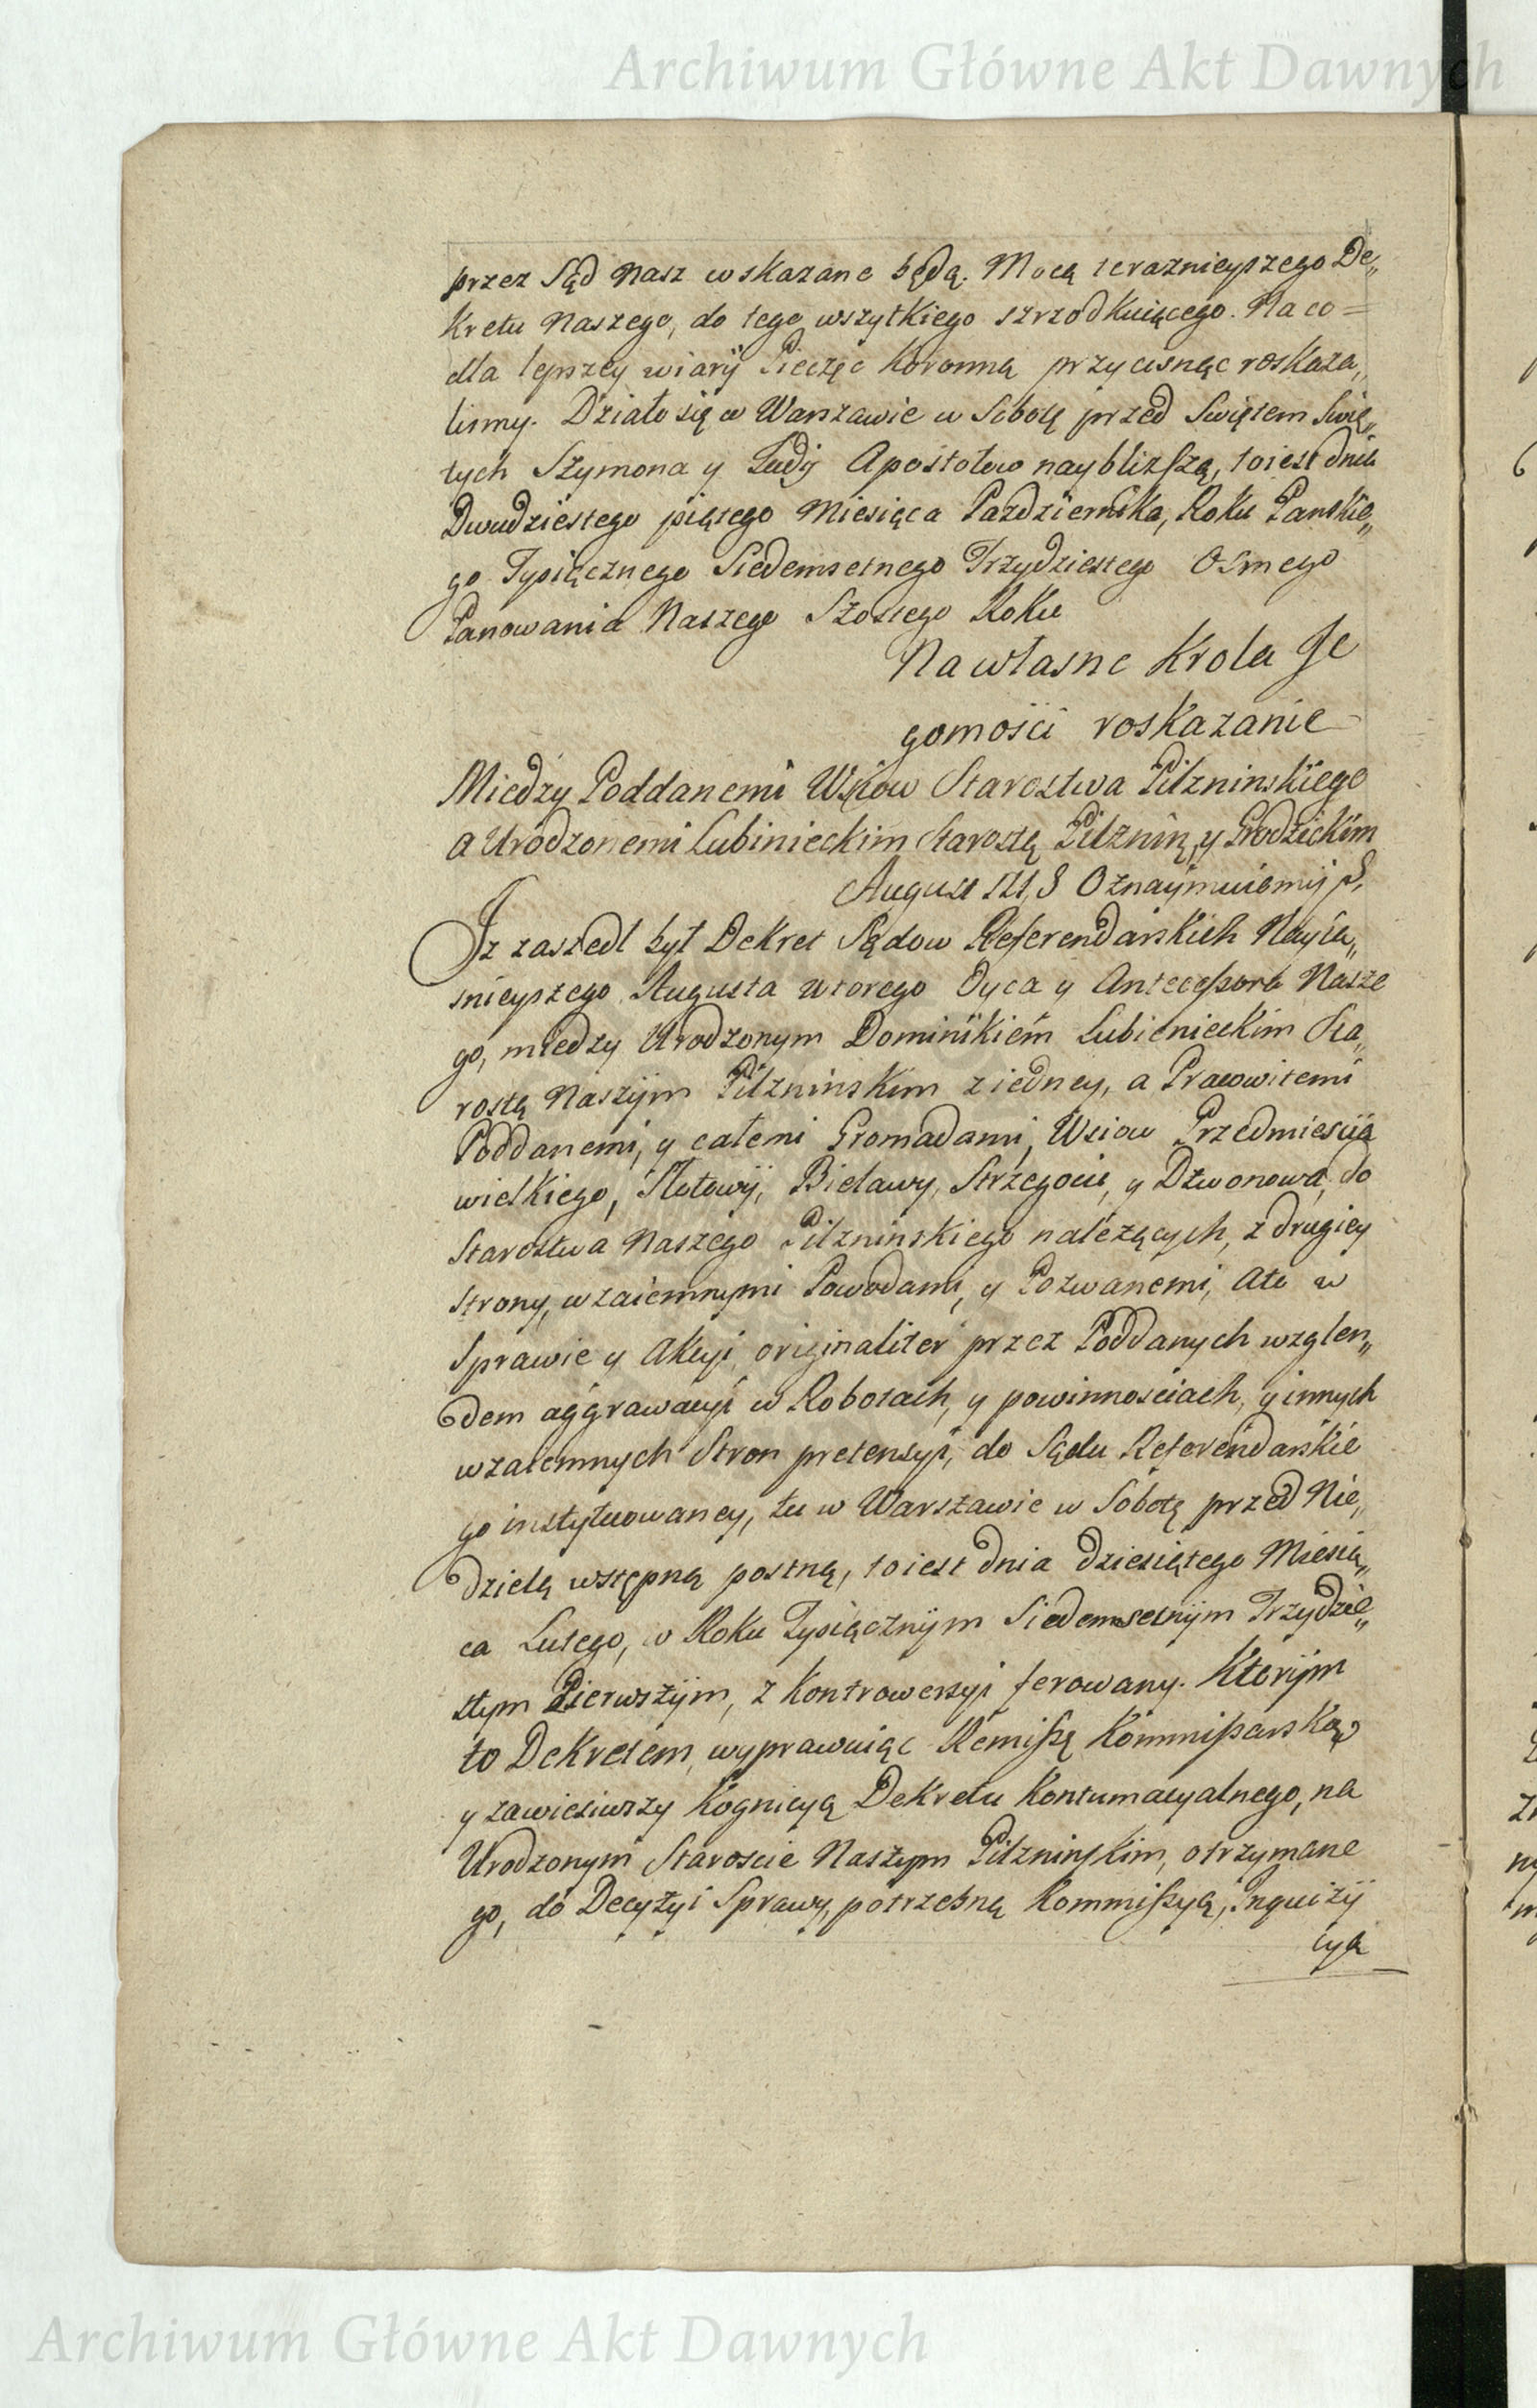 Archiwum Główne Akt Dawnych
przez Sąd Nasz wskazane będą. Mocą teraznieyszego De„
kretu Naszego, do tego wszytkiego szrzodkuiącego. Na co =
dla lepszey wiary Pieczęc Koronną przycisnąc roskaza„
lismy. Działo się w Warszawie w Sobotę przed Swiętem Swię„
tych Szymona y Judy Apostołow naybliższą, to iest dnia
Dwudziestego piątego Miesiąca Pazdziernika, Roku Panskie„
go Tysiącznego Siedemsetnego Trzydziestego Osmego
Panowania Naszego Szostego Roku
Na własne Krola Je
gomości roskazanie
Miedzy Poddanemi Wsiow Starostwa Pilzninskiego
a Urodzonemi Lubinieckim Starostą Pilznin, y Grodzickim
August III, S Oznaymuiemy S,
Iz zaszedł był Dekret Sądow Referendarskich Nayia„
snieyszego Augusta wtorego Oyca y Antecessora Nasze
go, miedzy Urodzonym Dominikiem Lubienieckim Sta„
rostą Naszym Pilzninskim z iedney, a Pracowitemi
Poddanemi, y całemi Gromadami, Wsiow Przedmiescia
wielkiego, Słotowy, Bielawy, Strzegocic, y Dzwonowa, do
Starostwa Naszego Pilzninskiego należących, z drugiey
strony, wzaiemnymi Powodami, y Pozwanemi, Ato w
Sprawie y Akcyi originaliter przez Poddanych wzglen„
dem aggrawacyi w Robotach, y powinnościach, y innych
wzaiemnych Stron pretensyi, do Sądu Referendarskie
go instytuowaney, tu w Warszawie w Sobotę przed Nie„
dzielą wstępną postną, to iest dnia dziesiątego Miesią„
ca Lutego, w Roku Tysiącznym Siedemsetnym Trzydzie„
stym Pierwszym, z Kontrowersyi ferowany. Ktorym
to Dekretem, wyprawuiąc Remissę Kommissarską
y zawiesiwszy Kognicyą Dekretu Kontumacyalnego, na
Urodzonym Staroscie Naszym Pilzninskim, otrzymane
go, do Decyzyi Sprawy, potrzebną Kommissyą, Inquizy
cyą
Archiwum Główne Akt Dawnych